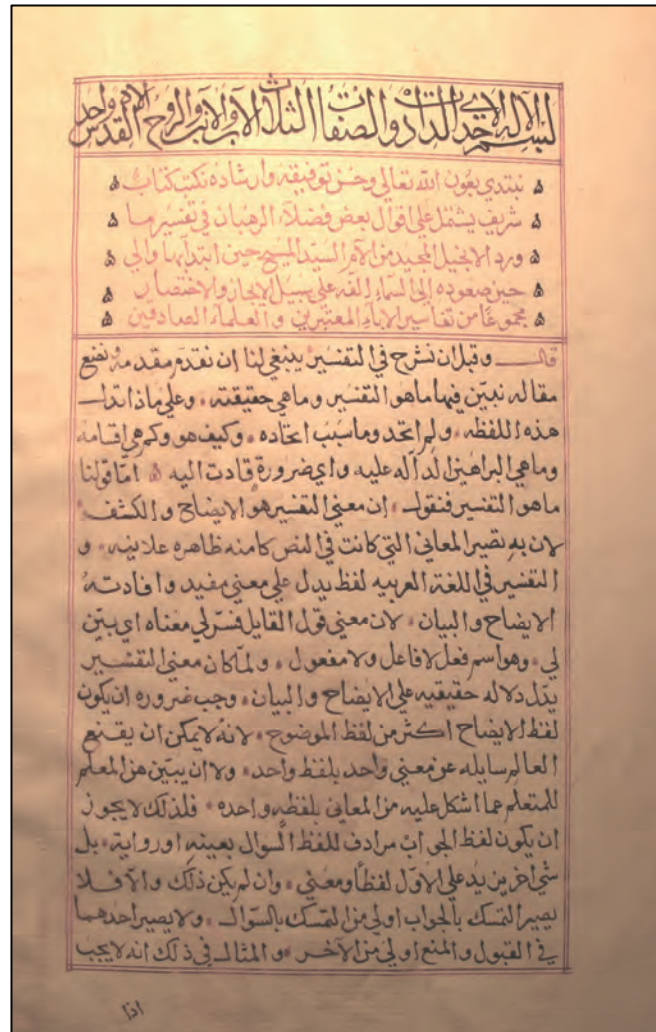 بسم الاله الابدي الاحدي الذات ذو الصفات الثلاث الآب والابن والروح القدس الاله واحد
نبتدي بعون الله تعالي وحسن توفيقه وارشاده نكتب كتاب
شريف يشتمل علي اقوال بعض فضلآء الرهبان في تفسير ما
ورد الانجيل المجيد من الآم السيد المسيح حين ابتدآيها والي
حين صعوده إلى السماء الفه علي سبيل الايجاز والاختصار
مجموعًا من تفاسير الاباء المعتبرين والعلماء الصادقين
قال وقبل ان نشرح في التفسير ينبغي لنا ان نقدم مقدمه ونضع
مقاله نبيّن فيها ما هو التفسير وما هي حقيقته وعلي ماذا تدل
هذه اللفظه ولم اتخد وما سبب اتخاده وكيف هو وكم هي اقسامه
وما هي البراهين الدآله عليه واي ضرورةٍ قادت اليه امّا قولنا
ما هو التفسير فنقول ان معني التفسير هو الايضاح والكشف
لان به تصير المعاني التي كانت في النص كامنه ظاهره علانيه و
التفسير في اللغة العربيه لفظ يدل علي معني مفيد وافادته
الايضاح والبيان لان معني قول القايل فسّر لي معناه اي بيّن
لي وهو اسم فعل لا فاعل ولا مفعول ولمّا كان معني التفسير
يدّل دلاله حقيقيه علي الايضاح والبيان وجب ضروره ان يكون
لفظ الايضاح اكثر من لفظ الموضوح لانهُ لا يمكن ان يقنع
العالم سايله عن معني واحد بلفظ واحد ولا ان يبيّن هذا المعلم
للمتعلم عما اشكل عليه من المعاني بلفظهٍ واحده فلذلك لا يجوز
ان يكون لفظ الجواب مرادف للفظ السوال بعينه او رواية بل
شي اخر يزيد علي الاول لفظًا ومعني وان لم يكن ذلك والا فلا
يصير التمسك بالجواب اولي من التمسك بالسوال ولا يصير احدهما
في القبول والمنع اولي من الآخر والمثال في ذلك انه لا يجب
اذا